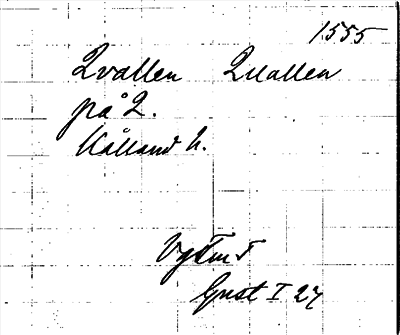 1555
Qvallen Quallen
på Q.
Kålland h.
Vg Tu 5
Gust I 27